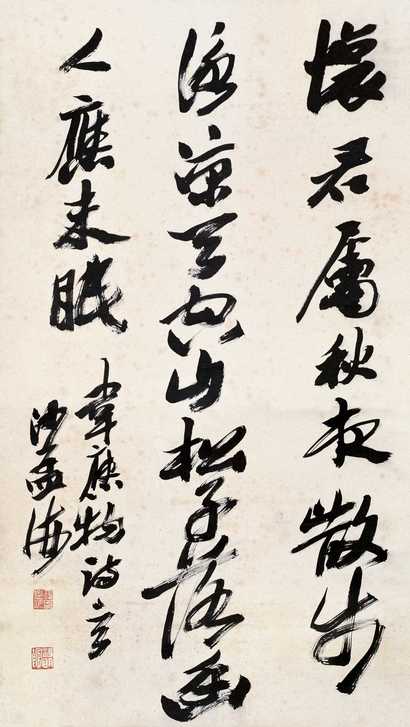 懷君屬秋夜散步
詠涼天空山松子落幽
人應未眠
韋應物詩
沙孟海